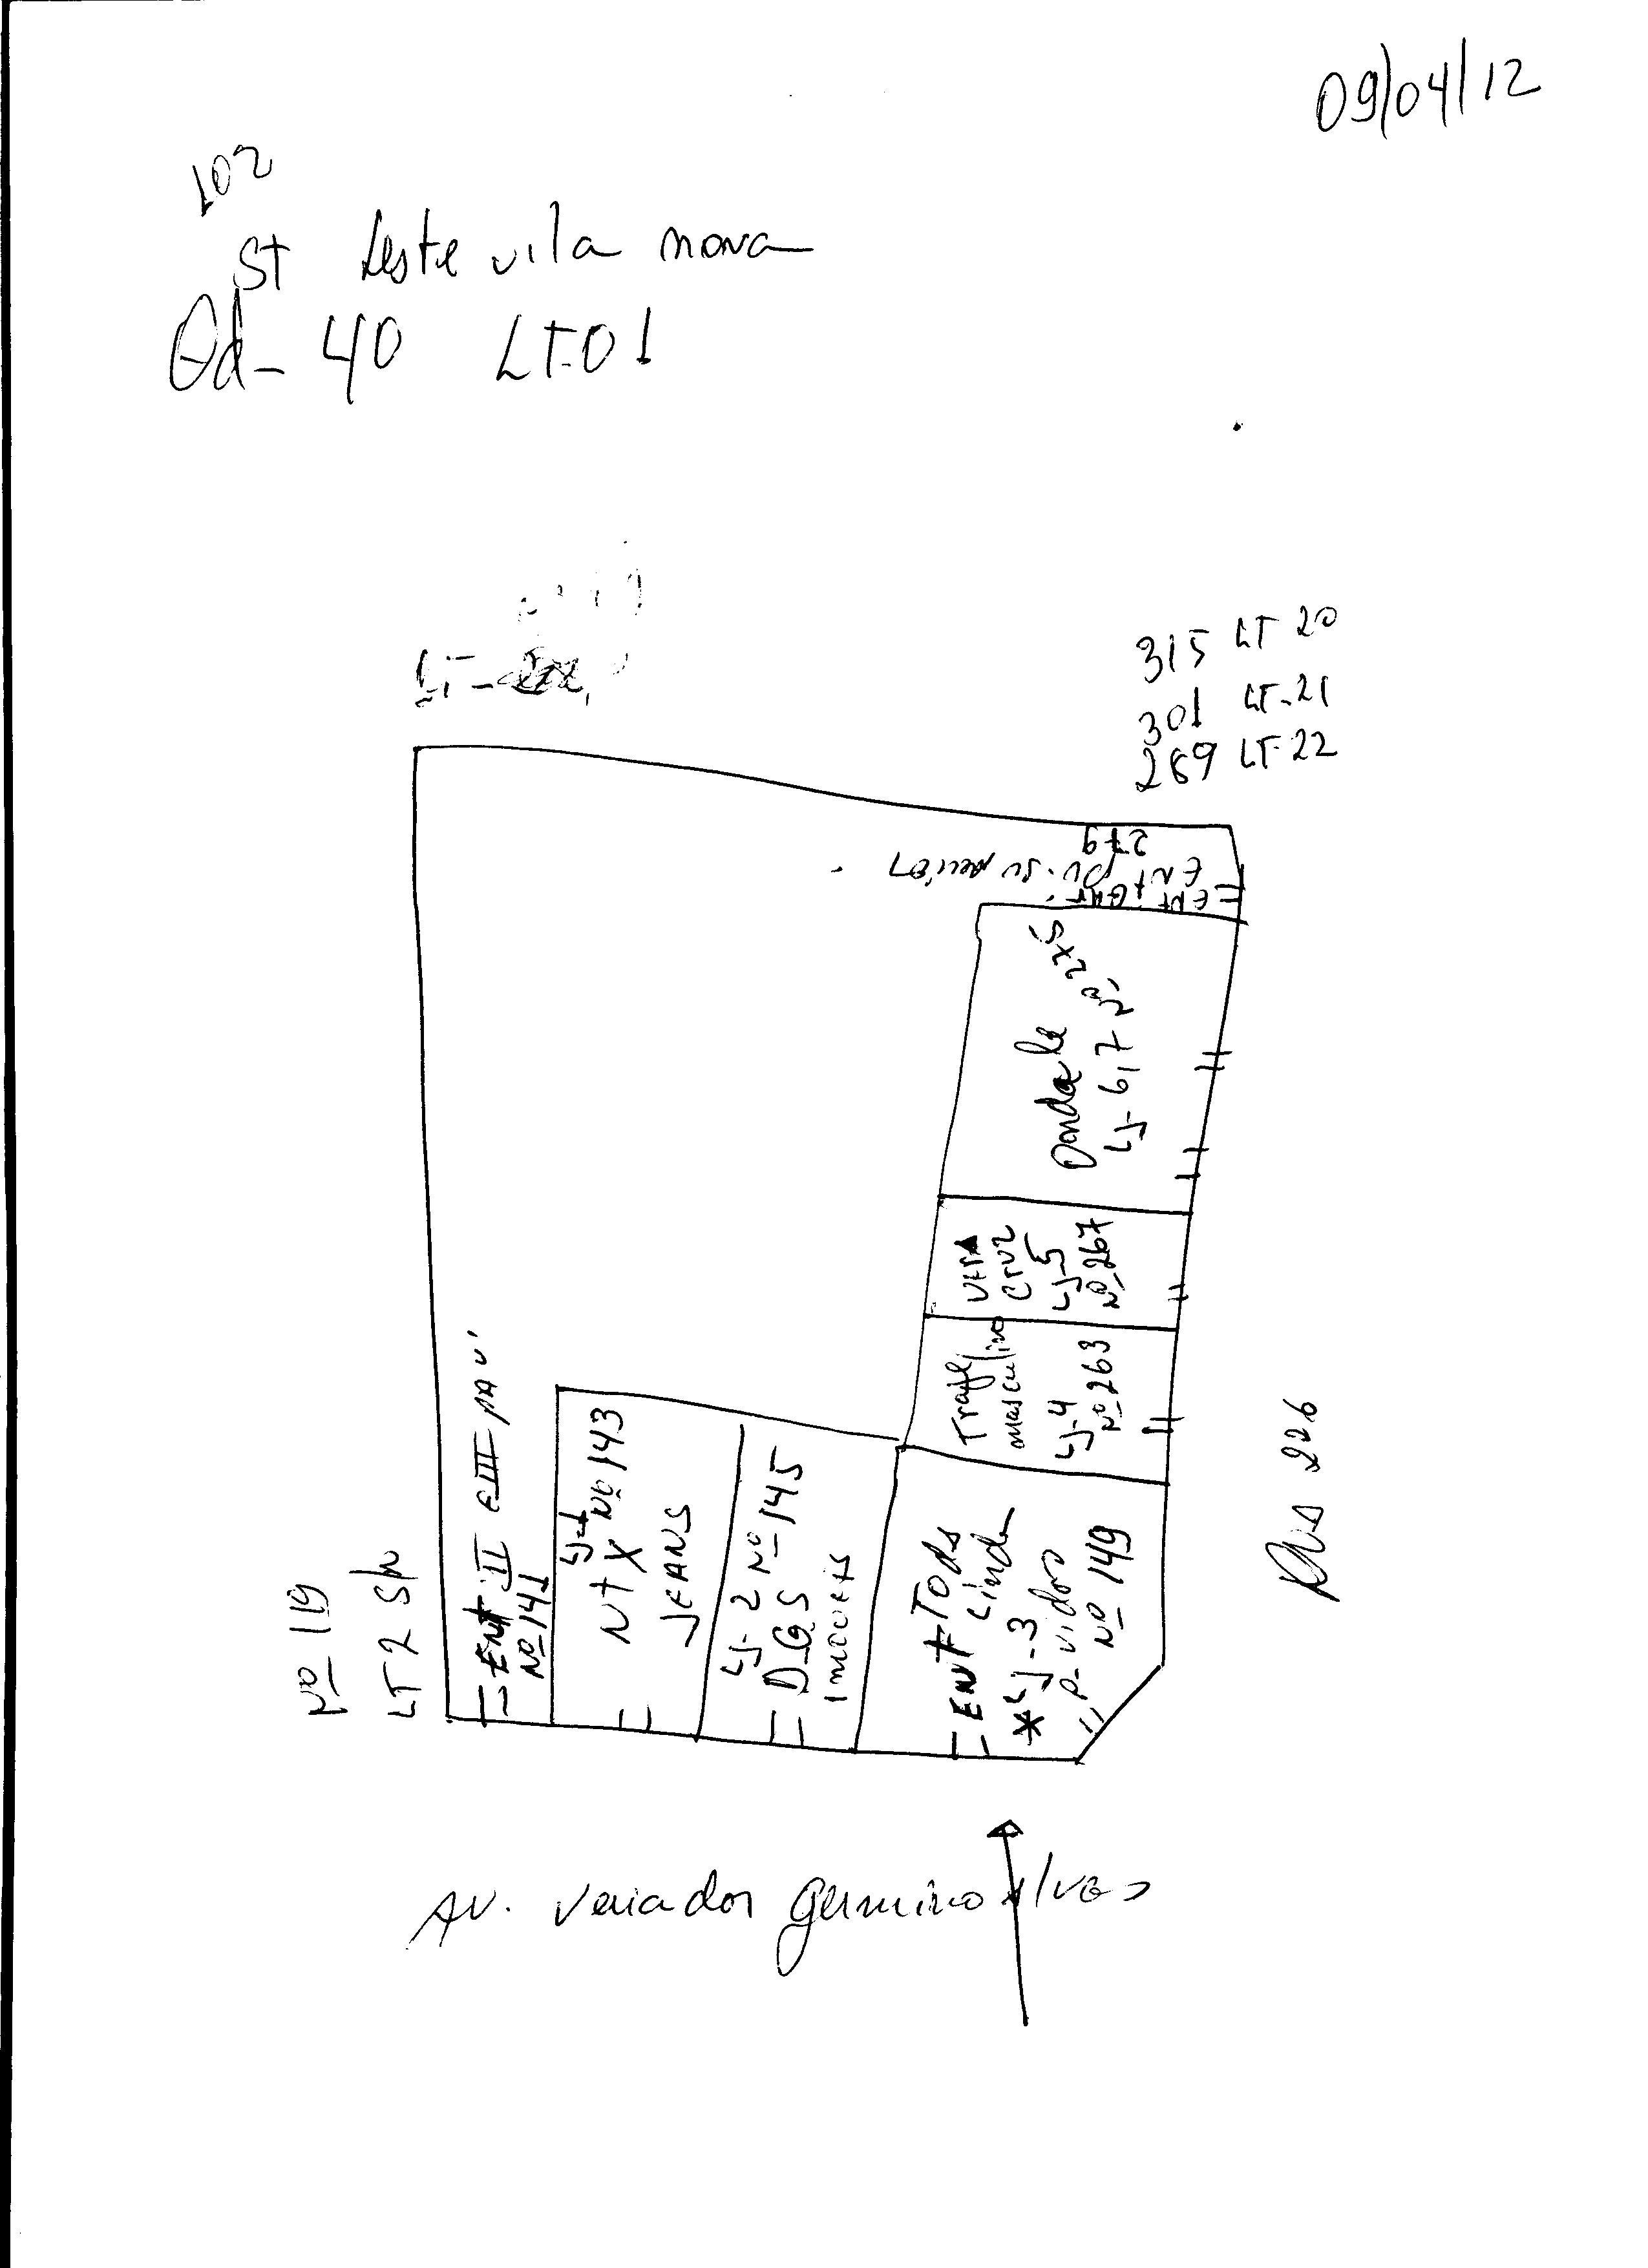 09/04/12
102
St Leste vila nova
Qd- 40 LT-01
LT-
315 LT 20
301 LT-21
289 LT-22
279
ENT
ENT
Nº 119
LT 2 S/n
ENT II E III PAV
Nº 141
LJ-1
Nº 143
NTX
JEANS
LJ-2 Nº 145
DGS
IMOVEIS
ENT Tods
Linda
*LJ-3
P. vidos
Nº 149
Traje
masculino
LJ-4
Nº 263
VERA
CRUZ
LJ-5
Nº 267
LJ-6,7 Nº
Rua 226
AV. Veriador germino Alves